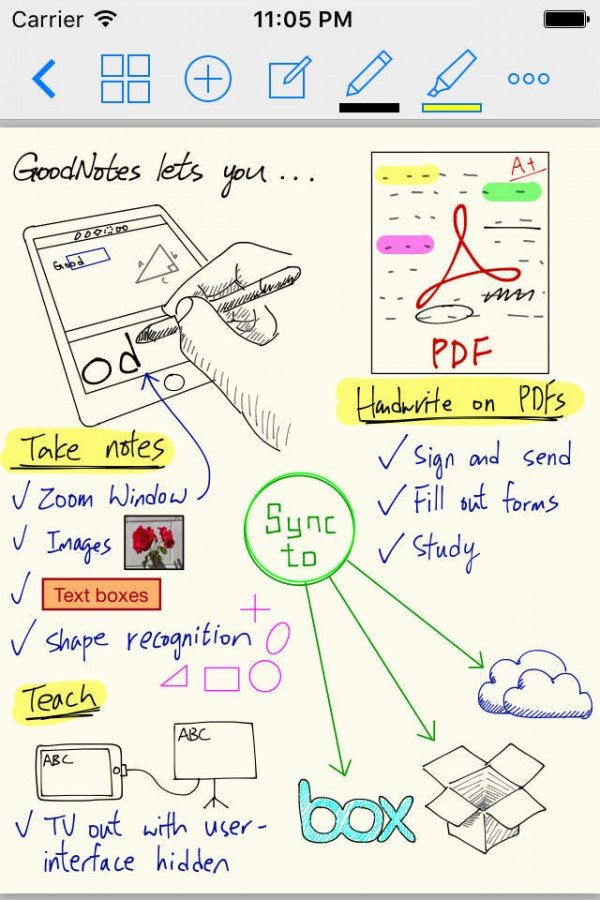 Carrier 11:05 PM
GoodNotes lets you ...
Good
a b c
od
A+
PDF
Handwrite on PDFs
✓ Sign and send
✓ Fill out forms
✓ Study
Take notes
✓ Zoom Window
✓ Images
✓ Text boxes
✓ shape recognition
Sync
to
box
Teach
ABC
ABC
✓ TV out with user-
interface hidden